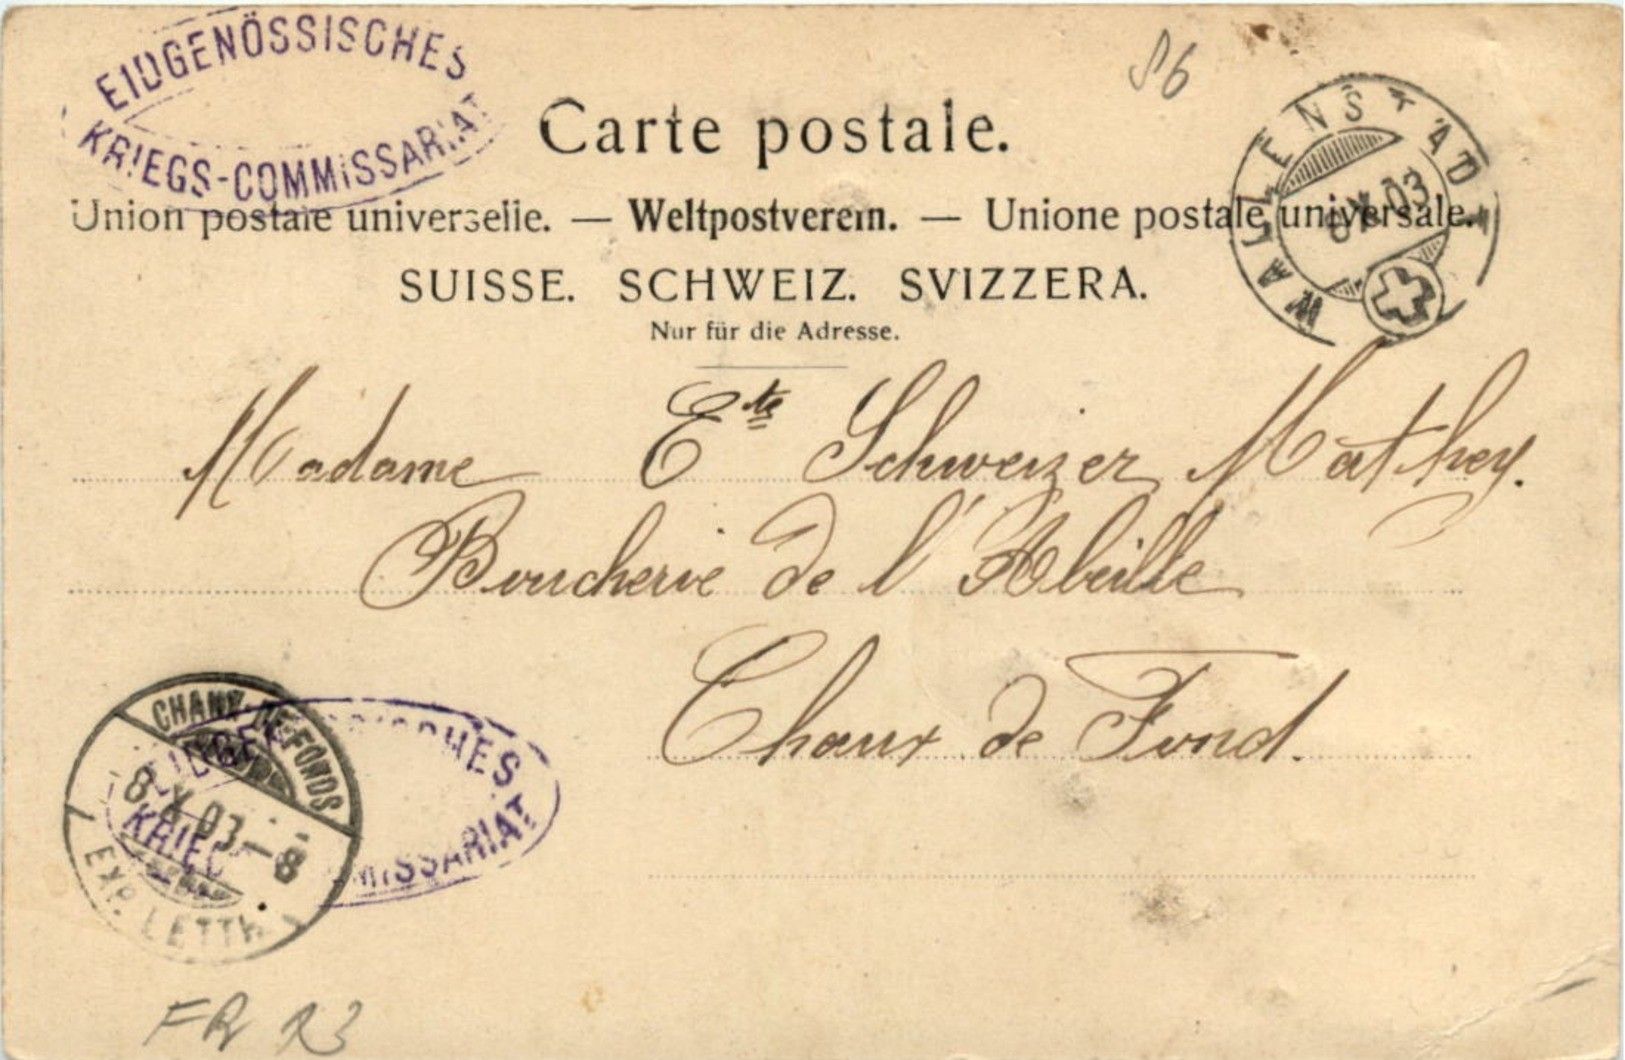 EIDGENÖSSISCHES
KRIEGS-COMMISSARIAT
86
Carte postale.
WALLENSTADT
X.03
Union postale universelle. — Weltpostverein. — Unione postale universale.
SUISSE. SCHWEIZ. SVIZZERA.
Nur für die Adresse.
Madame Ete Schweizer Mathey.
Boucherie de l'Abeille
Chaux de Fond.
CHAUX-DE-FONDS
8.X.03.-8
EXP. LETTR.
EIDGENÖSSISCHES
KRIEGS-COMMISSARIAT